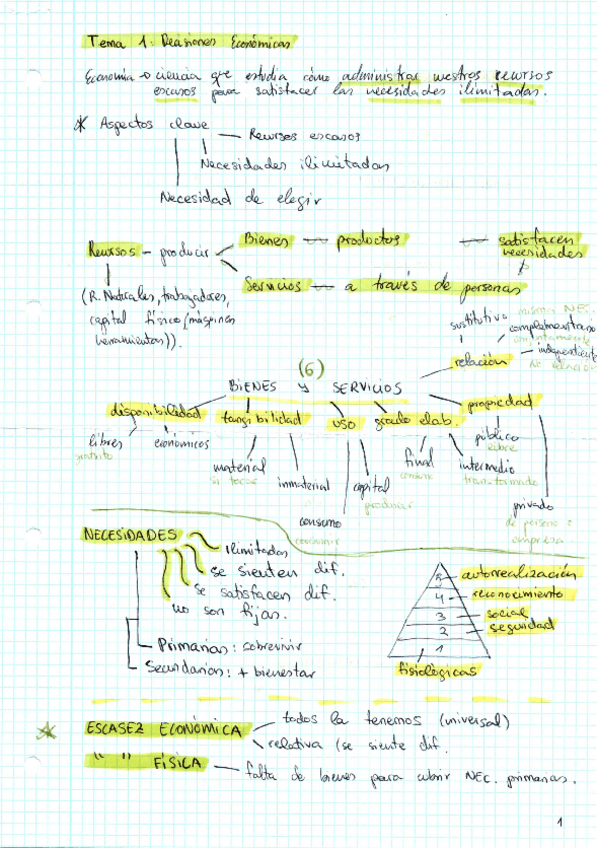 Tema 1: Decisiones Económicas
Economía → ciencia que estudia cómo administrar nuestros recursos
escasos para satisfacer las necesidades ilimitadas.
* Aspectos clave
Recursos escasos
Necesidades ilimitadas
Necesidad de elegir
Recursos - producir
Bienes — productos — satisfacen
necesidades
Servicios — a través de personas
(R. Naturales, trabajadores,
capital físico (máquinas
herramientas)).
(6)
BIENES y SERVICIOS
relación
sustitutivo
misma NEC.
complementario
conjuntamente
independiente
disponibilidad
libres
gratuito
económicos
tangibilidad
material
si tocar
inmaterial
uso
consumo
consumir
capital
producir
grado elab.
final
consumir
intermedio
transformado
propiedad
público
libre
privado
de persona o
empresa
NECESIDADES
Ilimitadas
se sienten dif.
se satisfacen dif.
no son fijas.
Primarias: sobrevivir
Secundarias: + bienestar
5 autorrealización
4 reconocimiento
3 social
2 seguridad
1
fisiológicas
* ESCASEZ ECONÓMICA
todos la tenemos (universal)
relativa (se siente dif.
" " FÍSICA — falta de bienes para cubrir NEC. primarias.
1